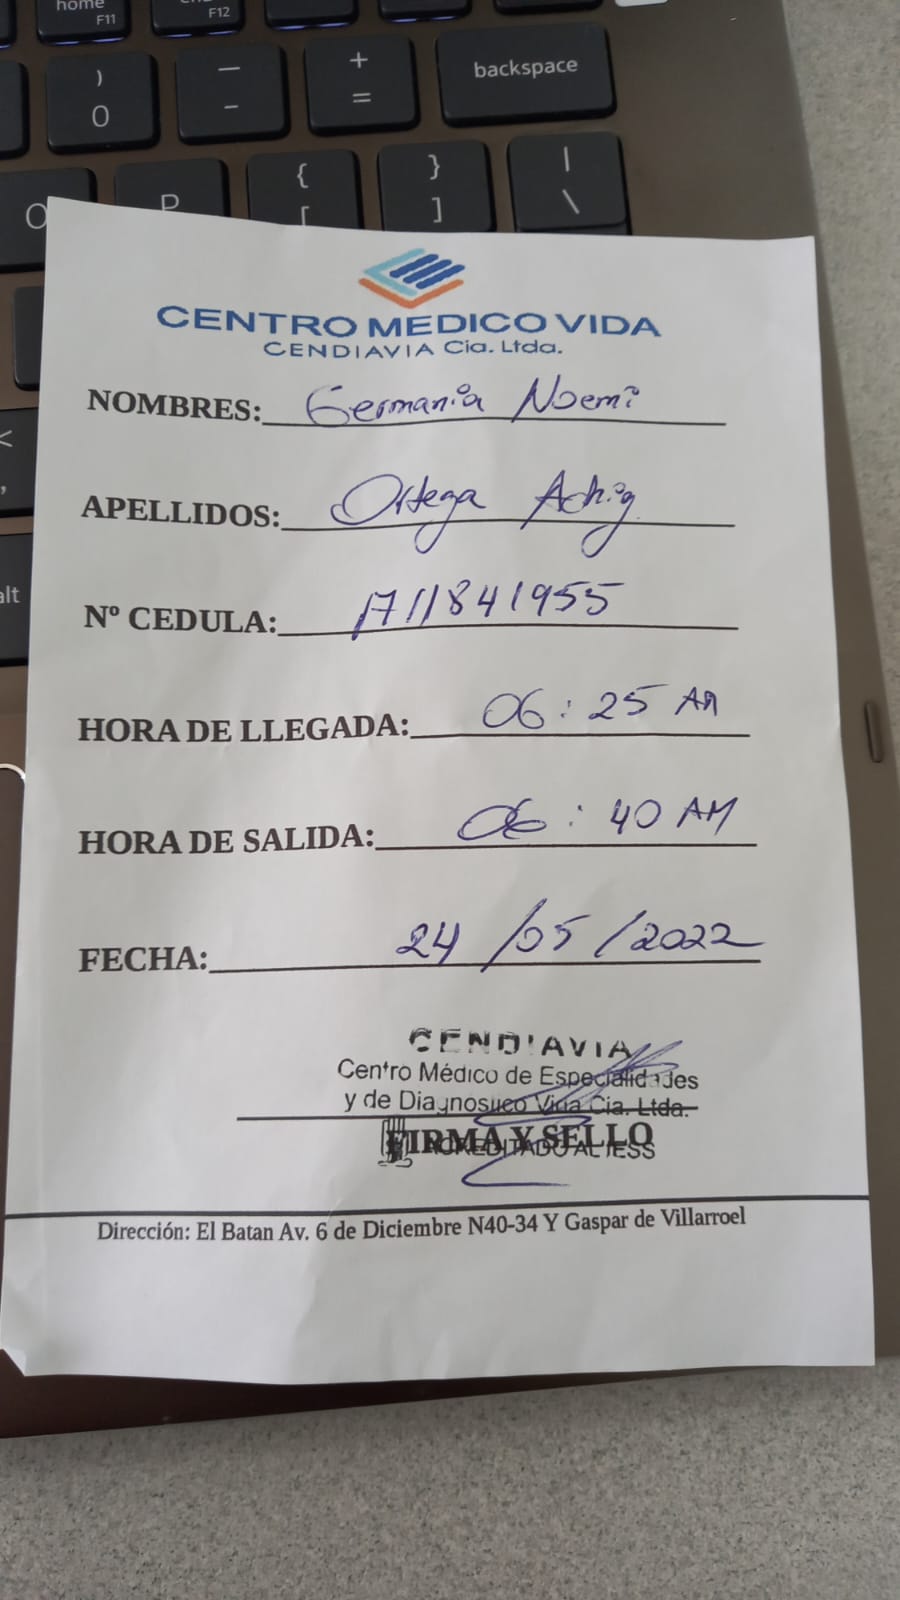 home
F11
F12
)
0
—
-
+
=
backspace
{
[
}
]
|
\
O
P
<
,
alt
CENTRO MEDICO VIDA
CENDIAVIA Cia. Ltda.
NOMBRES: Germania Noemi
APELLIDOS: Ortega Achig
Nº CEDULA: 1711841955
HORA DE LLEGADA: 06:25 AM
HORA DE SALIDA: 06:40 AM
FECHA: 24/05/2022
CENDIAVIA
Centro Médico de Especialidades
y de Diagnostico Vida Cia. Ltda.
FIRMA Y SELLO
ACREDITADO AL IESS
Dirección: El Batan Av. 6 de Diciembre N40-34 Y Gaspar de Villarroel